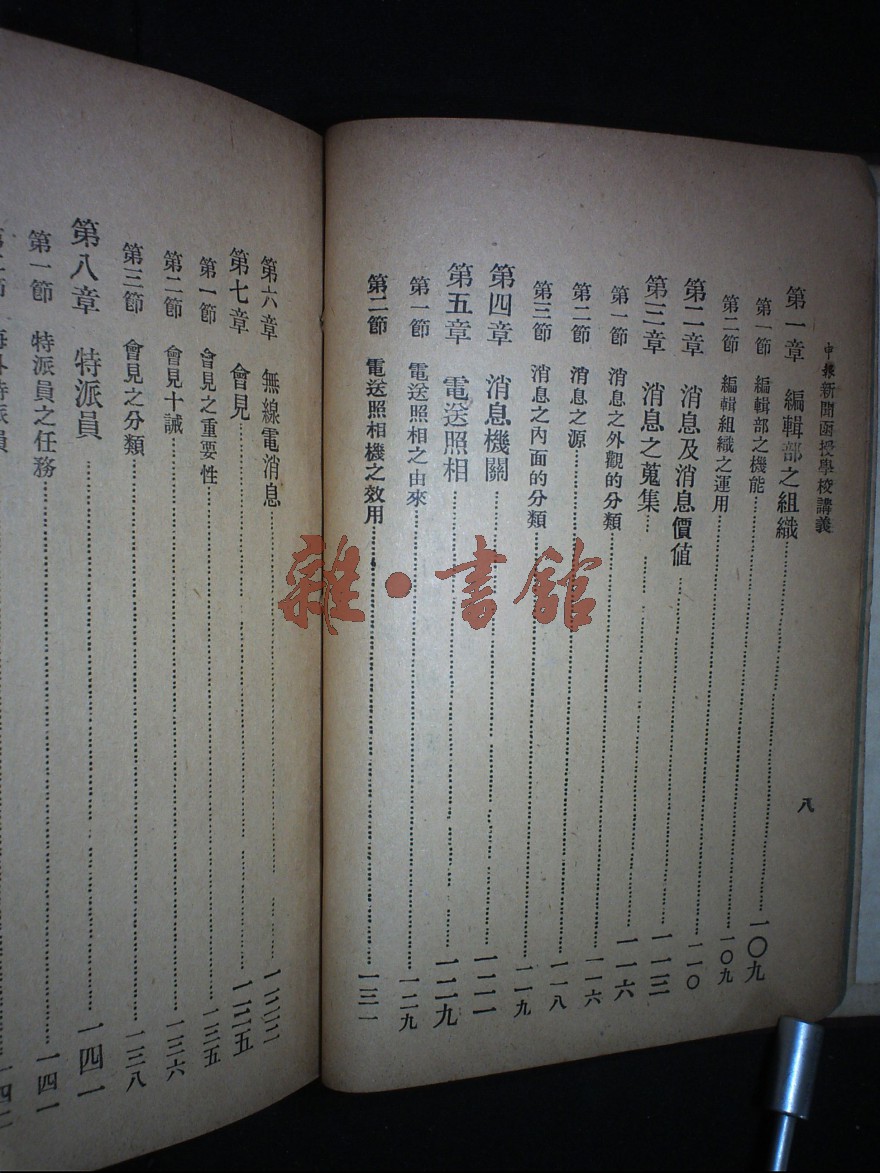 申報新聞函授學校講義
八
第一章 編輯部之組織……一〇九
第一節 編輯部之機能……一〇九
第二節 編輯組織之運用……一一〇
第二章 消息及消息價值……一一三
第三章 消息之蒐集……一一六
第一節 消息之外觀的分類……一一六
第二節 消息之源……一一八
第三節 消息之內面的分類……一一九
第四章 消息機關……一二一
第五章 電送照相……一二九
第一節 電送照相之由來……一二九
第二節 電送照相機之效用……一三一
第六章 無線電消息……一三二
第七章 會見……一三五
第一節 會見之重要性……一三五
第二節 會見十誡……一三六
第三節 會見之分類……一三八
第八章 特派員……一四一
第一節 特派員之任務……一四一
第二節 海外特派員
雜·書館